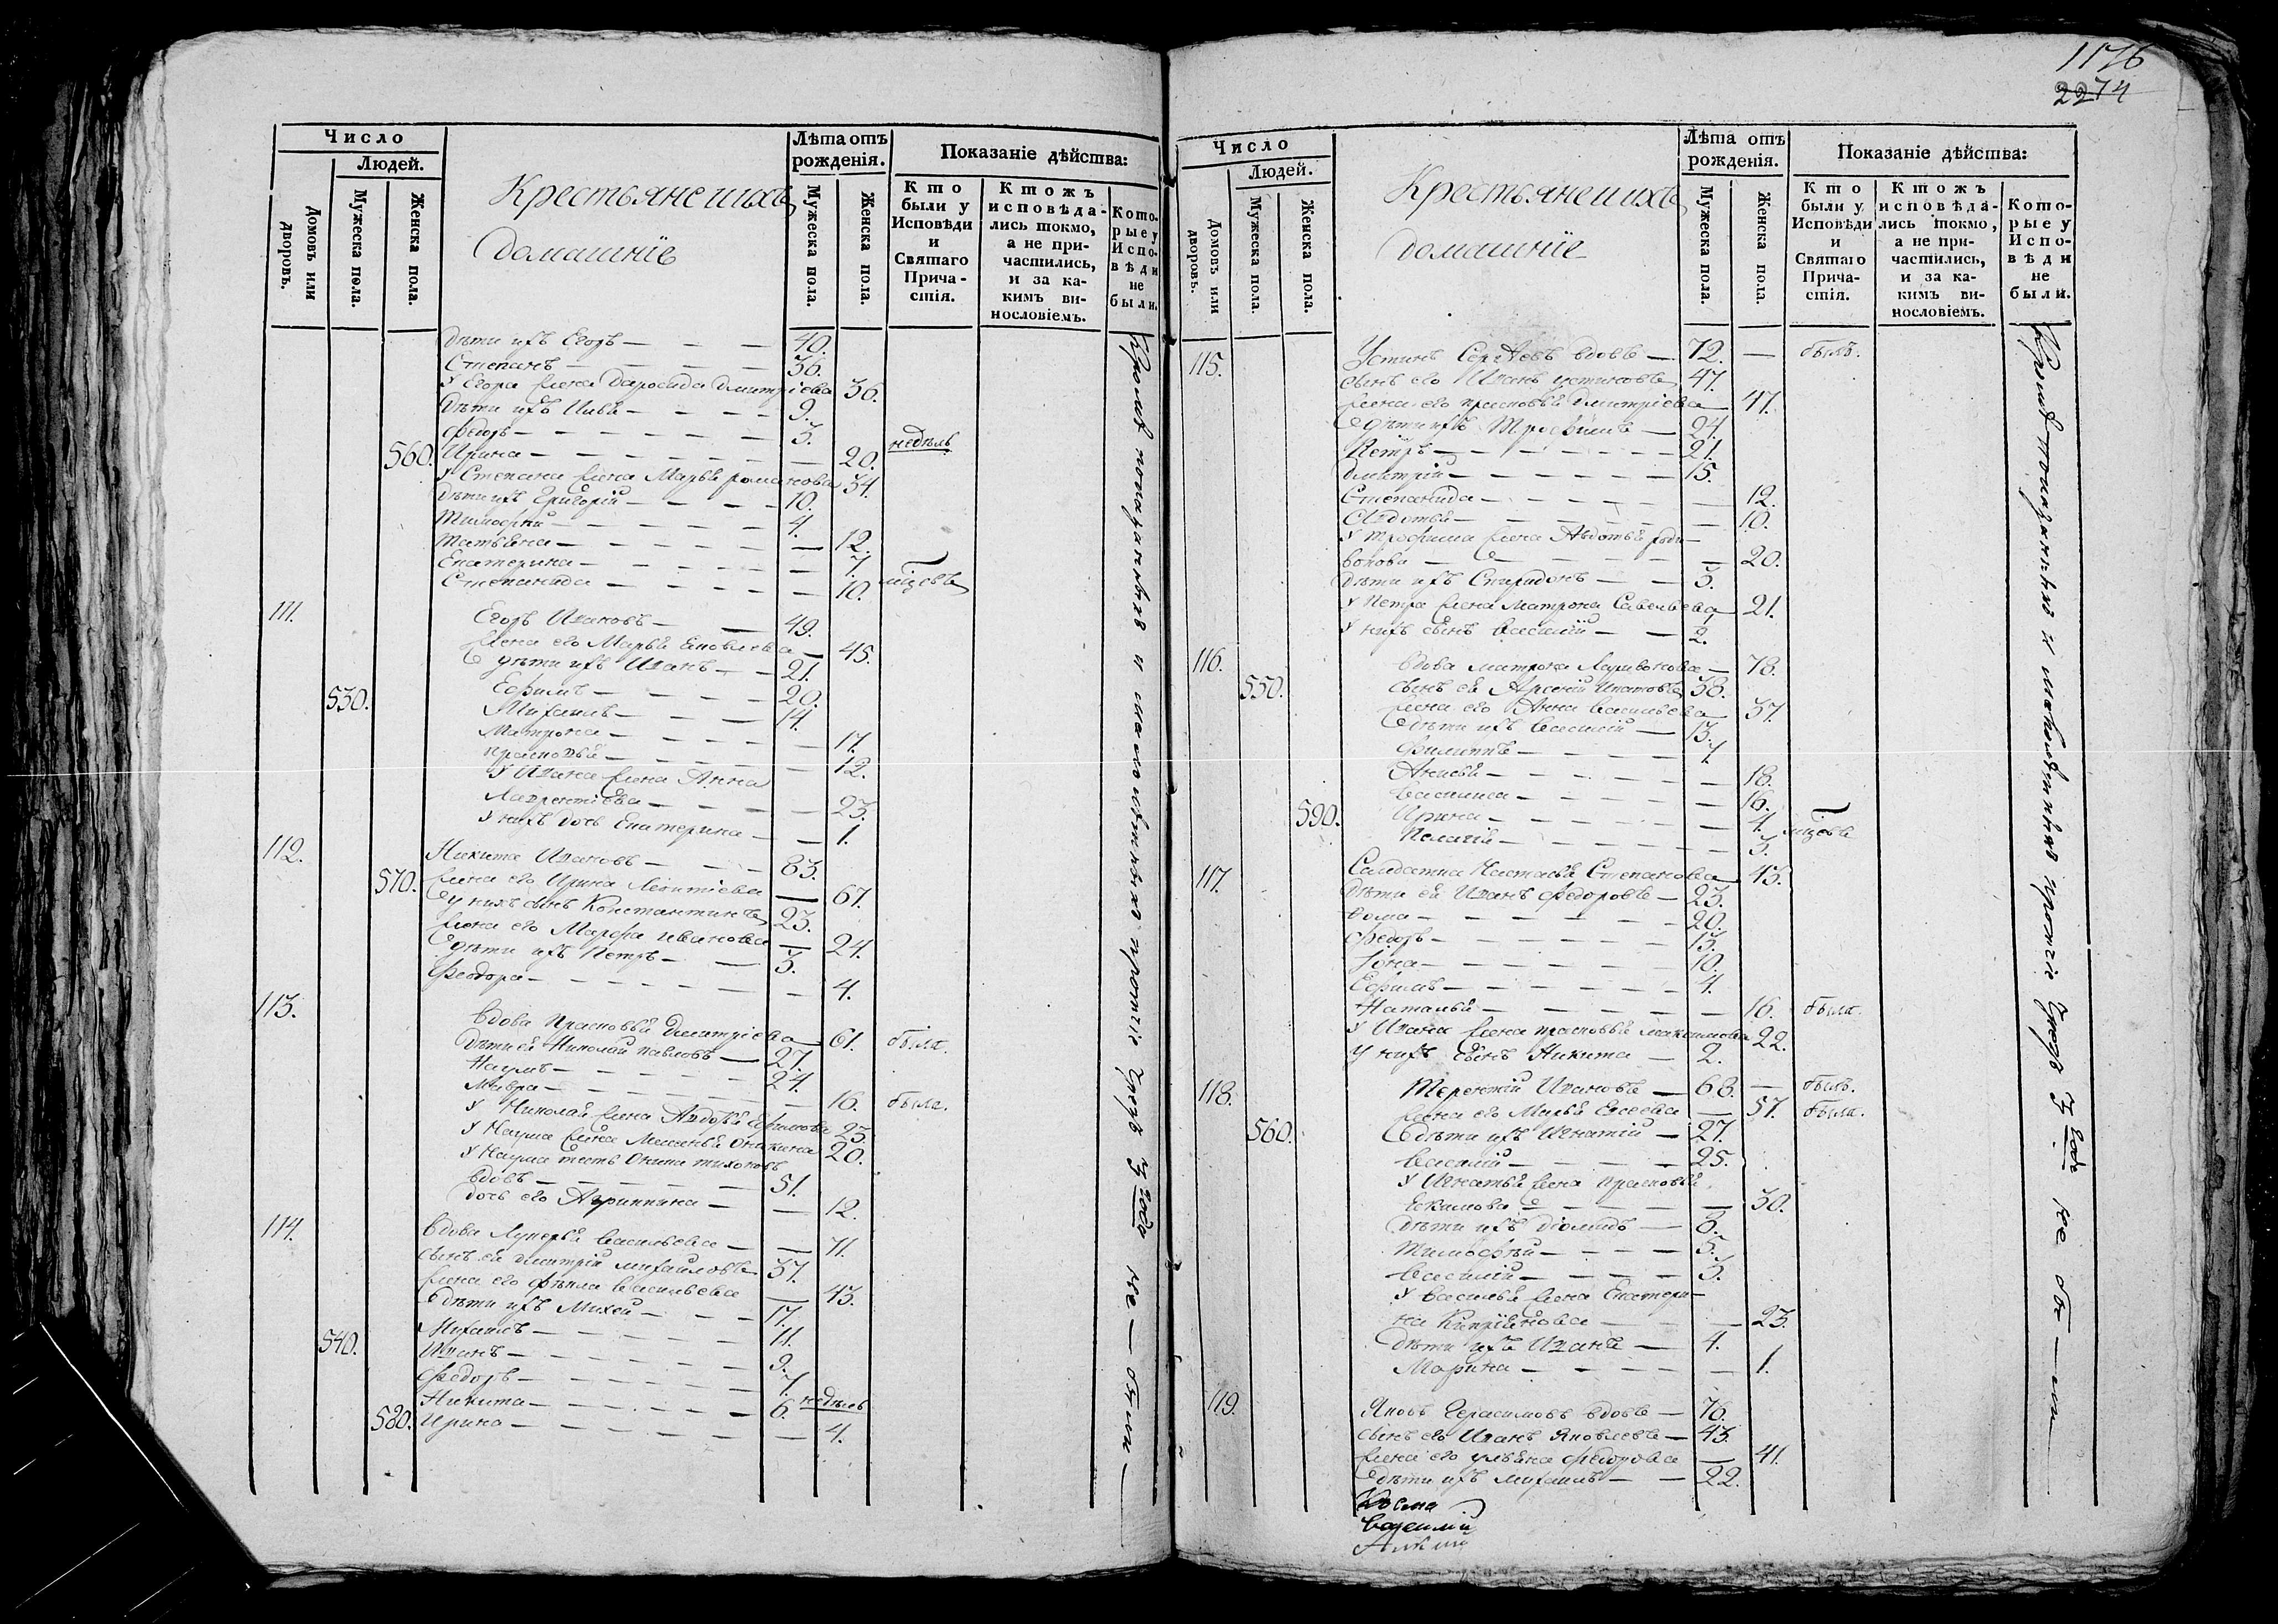 1176
2274
Число
Людей.
Домовъ или дворовъ.
Мужеска пола.
Женска пола.
Крестьяне ихъ
домашнїе
Лѣта отъ рожденія.
Мужеска пола.
Женска пола.
Показаніе дѣйства:
Кто были у Исповѣди и Святаго Причастія.
Ктожъ исповѣдались токмо, а не причастились, и за какимъ винословіемъ.
Которые у Исповѣди не были.
дѣти ихъ Егоръ — 40.
Степанъ — 36.
У Егора жена Дмитріева 36.
дѣти ихъ — 9.
Федоръ — 3.
560. Ирина — 20.
У Степана жена Марья романова 34.
дѣти ихъ Григорій — 10.
Тимофей — 4.
Татьяна — 12.
Екатерина — 7.
Степанида — 10.
111. Егоръ Ивановъ — 49.
жена его Марья Яковлева — 45.
дѣти ихъ Иванъ — 21.
Ефимъ — 20.
530. Михаилъ — 14.
Матрона — 17.
Прасковья — 12.
У Ивана жена Анна
Лаврентіева — 23.
У нихъ дочь Екатерина — 1.
112. Никита Ивановъ — 83.
570. жена его Ирина Леонтіева — 67.
у нихъ сынъ Константинъ 23.
жена его Марфа Иванова — 24.
дѣти ихъ Петръ — 3.
Феодора — 4.
113. Вдова Прасковья Дмитріева 61. была.
дѣти ей Николай Павловъ — 27.
Наумъ — 24.
Мавра — 16. была.
У Николая жена Авдотья 23.
У Наума жена 20.
У Наума тесть тихоновъ
вдовъ — 51.
дочь его Агрипина — 12.
114. Вдова Лукерья Васильева — 71.
сынъ ей Дмитрій Михайловъ 37.
жена его Васильева — 43.
дѣти ихъ Михей — 17.
Михаилъ — 11.
540. Иванъ — 9.
Федоръ — 7.
Никита — 6.
580. Ирина — 4.
Кромѣ показанныхъ и малолѣтныхъ протчіе чрезъ 3 года не — были —
Число
Людей.
Домовъ или дворовъ.
Мужеска пола.
Женска пола.
Крестьяне ихъ
домашнїе
Лѣта отъ рожденія.
Мужеска пола.
Женска пола.
Показаніе дѣйства:
Кто были у Исповѣди и Святаго Причастія.
Ктожъ исповѣдались токмо, а не причастились, и за какимъ винословіемъ.
Которые у Исповѣди не были.
115. Устинъ Сергѣевъ вдовъ — 72. — былъ.
сынъ его Иванъ Устиновъ 47.
жена его Прасковья Дмитріева — 47.
дѣти ихъ Трофимъ — 24.
Петръ — 21.
Дмитрій — 15.
Степанида — 12.
Авдотья — 10.
У Трофима жена Авдотья Роди-
вонова — 20.
дѣти ихъ Спиридонъ — 3.
У Петра жена Матрона Савельева 21.
У нихъ сынъ Василій — 2.
116. Вдова Матрона Ларивонова — 78.
550. сынъ ей Арсеній Ипатовъ 38.
жена его Анна Васильева 37.
дѣти ихъ Василій — 13.
Филиппъ — 7.
Анисья — 18.
Василиса — 16.
590. Ирина — 4.
Пелагія — 3.
117. Салдатка Настасья Степанова 43.
дѣти ей Иванъ Федоровъ — 23.
Фома — 20.
Федоръ — 13.
Іона — 10.
Ефимъ — 4.
Наталья — 16. была.
У Ивана жена Прасковья Максимова 22.
У нихъ сынъ Никита — 2.
118. Терентій Ивановъ — 68. — былъ.
жена его Марья Елсеева — 57. была.
560. дѣти ихъ Игнатій — 27.
Василій — 25.
У Игнатья жена Прасковья
Екимова — 30.
дѣти ихъ Діомидъ — 8.
Тимофѣй — 5.
Василій — 3.
У Василья жена Екатери-
на Кипріянова — 23.
дѣти ихъ Иванъ — 4.
Марина — 1.
119. Яковъ Герасимовъ вдовъ — 76.
сынъ его Иванъ Яковлевъ — 43.
жена его Ульяна Федорова — 41.
дѣти ихъ Михаилъ — 22.
Косма
Василій
Кромѣ показанныхъ и малолѣтныхъ протчіе чрезъ 3 года не бы — ли —